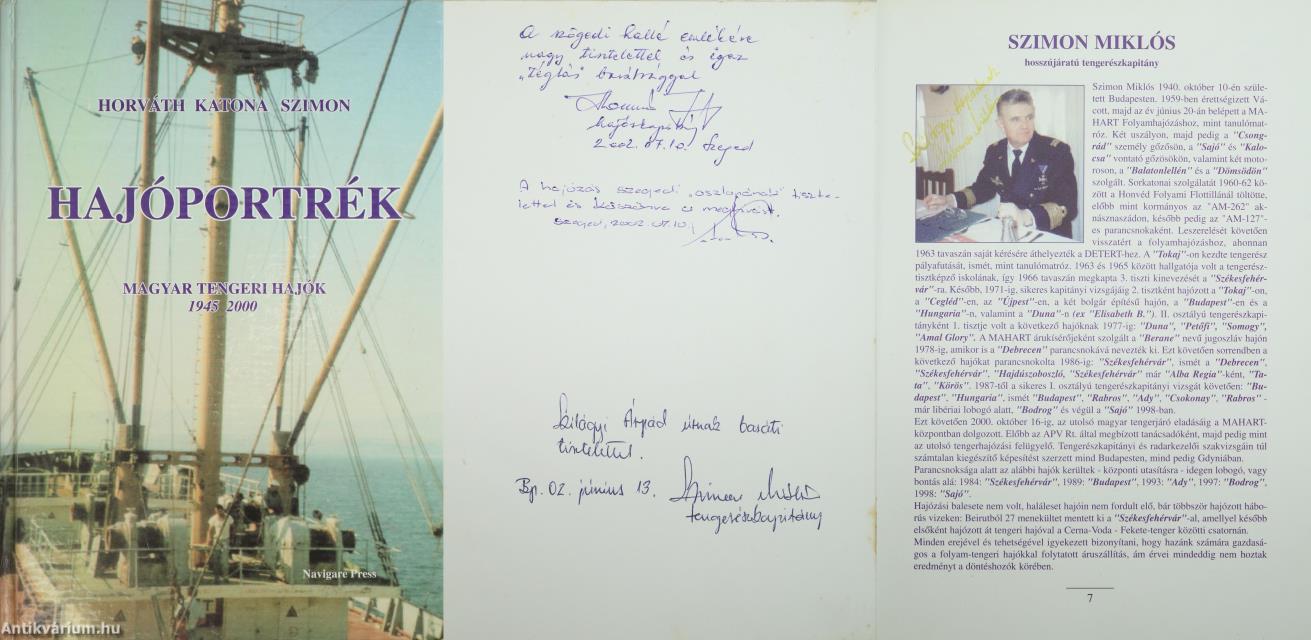 HORVÁTH KATONA SZIMON
HAJÓPORTRÉK
MAGYAR TENGERI HAJÓK
1945 2000
Navigare Press
Antikvárium.hu
A szegedi halló emlékére
nagy tisztelettel és igaz
"téglás" barátsággal
hajóskapitány
2002.07.10. Szeged
A hajózás szegedi "oszlopának" tiszte-
lettel és köszönve a meghívást.
Szeged, 2002.07.10.
Szilágyi Árpád úrnak baráti
tisztelettel.
Bp. 02. június 13. Szimon Miklós
tengerészkapitány
SZIMON MIKLÓS
hosszújáratú tengerészkapitány
Szimon Miklós 1940. október 10-én szüle-
tett Budapesten. 1959-ben érettségizett Vá-
cott, majd az év június 20-án belépett a MA-
HART Folyamhajózáshoz, mint tanulómat-
róz. Két uszályon, majd pedig a "Csong-
rád" személy gőzösön, a "Sajó" és "Kalo-
csa" vontató gőzösökön, valamint két moto-
roson, a "Balatonlellén" és a "Dömsödön"
szolgált. Sorkatonai szolgálatát 1960-62 kö-
zött a Honvéd Folyami Flottillánál töltötte,
előbb mint kormányos az "AM-262" ak-
násznaszádon, később pedig az "AM-127"-
es parancsnokaként. Leszerelését követően
visszatért a folyamhajózáshoz, ahonnan
1963 tavaszán saját kérésére áthelyezték a DETERT-hez. A "Tokaj"-on kezdte tengerész
pályafutását, ismét, mint tanulómatróz. 1963 és 1965 között hallgatója volt a tengerész-
tisztképző iskolának, így 1966 tavaszán megkapta 3. tiszti kinevezését a "Székesfehér-
vár"-ra. Később, 1971-ig, sikeres kapitányi vizsgájáig 2. tisztként hajózott a "Tokaj"-on,
a "Cegléd"-en, az "Újpest"-en, a két bolgár építésű hajón, a "Budapest"-en és a
"Hungaria"-n, valamint a "Duna"-n (ex "Elisabeth B."). II. osztályú tengerészkapi-
tányként 1. tisztje volt a következő hajóknak 1977-ig: "Duna", "Petőfi", "Somogy",
"Amal Glory". A MAHART árukísérőjeként szolgált a "Berane" nevű jugoszláv hajón
1978-ig, amikor is a "Debrecen" parancsnokává nevezték ki. Ezt követően sorrendben a
következő hajókat parancsnokolta 1986-ig: "Székesfehérvár", ismét a "Debrecen",
"Székesfehérvár", "Hajdúszoboszló, "Székesfehérvár" már "Alba Regia"-ként, "Ta-
ta", "Körös". 1987-től a sikeres I. osztályú tengerészkapitányi vizsgát követően: "Bu-
dapest", "Hungaria", ismét "Budapest", "Rabros", "Ady", "Csokonay", "Rabros" -
már libériai lobogó alatt, "Bodrog" és végül a "Sajó" 1998-ban.
Ezt követően 2000. október 16-ig, az utolsó magyar tengerjáró eladásáig a MAHART-
központban dolgozott. Előbb az APV Rt. által megbízott tanácsadóként, majd pedig mint
az utolsó tengerhajózási felügyelő. Tengerészkapitányi és radarkezelői szakvizsgáin túl
számtalan kiegészítő képesítést szerzett mind Budapesten, mind pedig Gdyniában.
Parancsnoksága alatt az alábbi hajók kerültek - központi utasításra - idegen lobogó, vagy
bontás alá: 1984: "Székesfehérvár", 1989: "Budapest", 1993: "Ady", 1997: "Bodrog",
1998: "Sajó".
Hajózási balesete nem volt, haláleset hajóin nem fordult elő, bár többször hajózott hábo-
rús vizeken: Beirutból 27 menekültet mentett ki a "Székesfehérvár"-al, amellyel később
elsőként hajózott át tengeri hajóval a Cerna-Voda - Fekete-tenger közötti csatornán.
Minden erejével és tehetségével igyekezett bizonyítani, hogy hazánk számára gazdasá-
gos a folyam-tengeri hajókkal folytatott áruszállítás, ám érvei mindeddig nem hoztak
eredményt a döntéshozók körében.
7